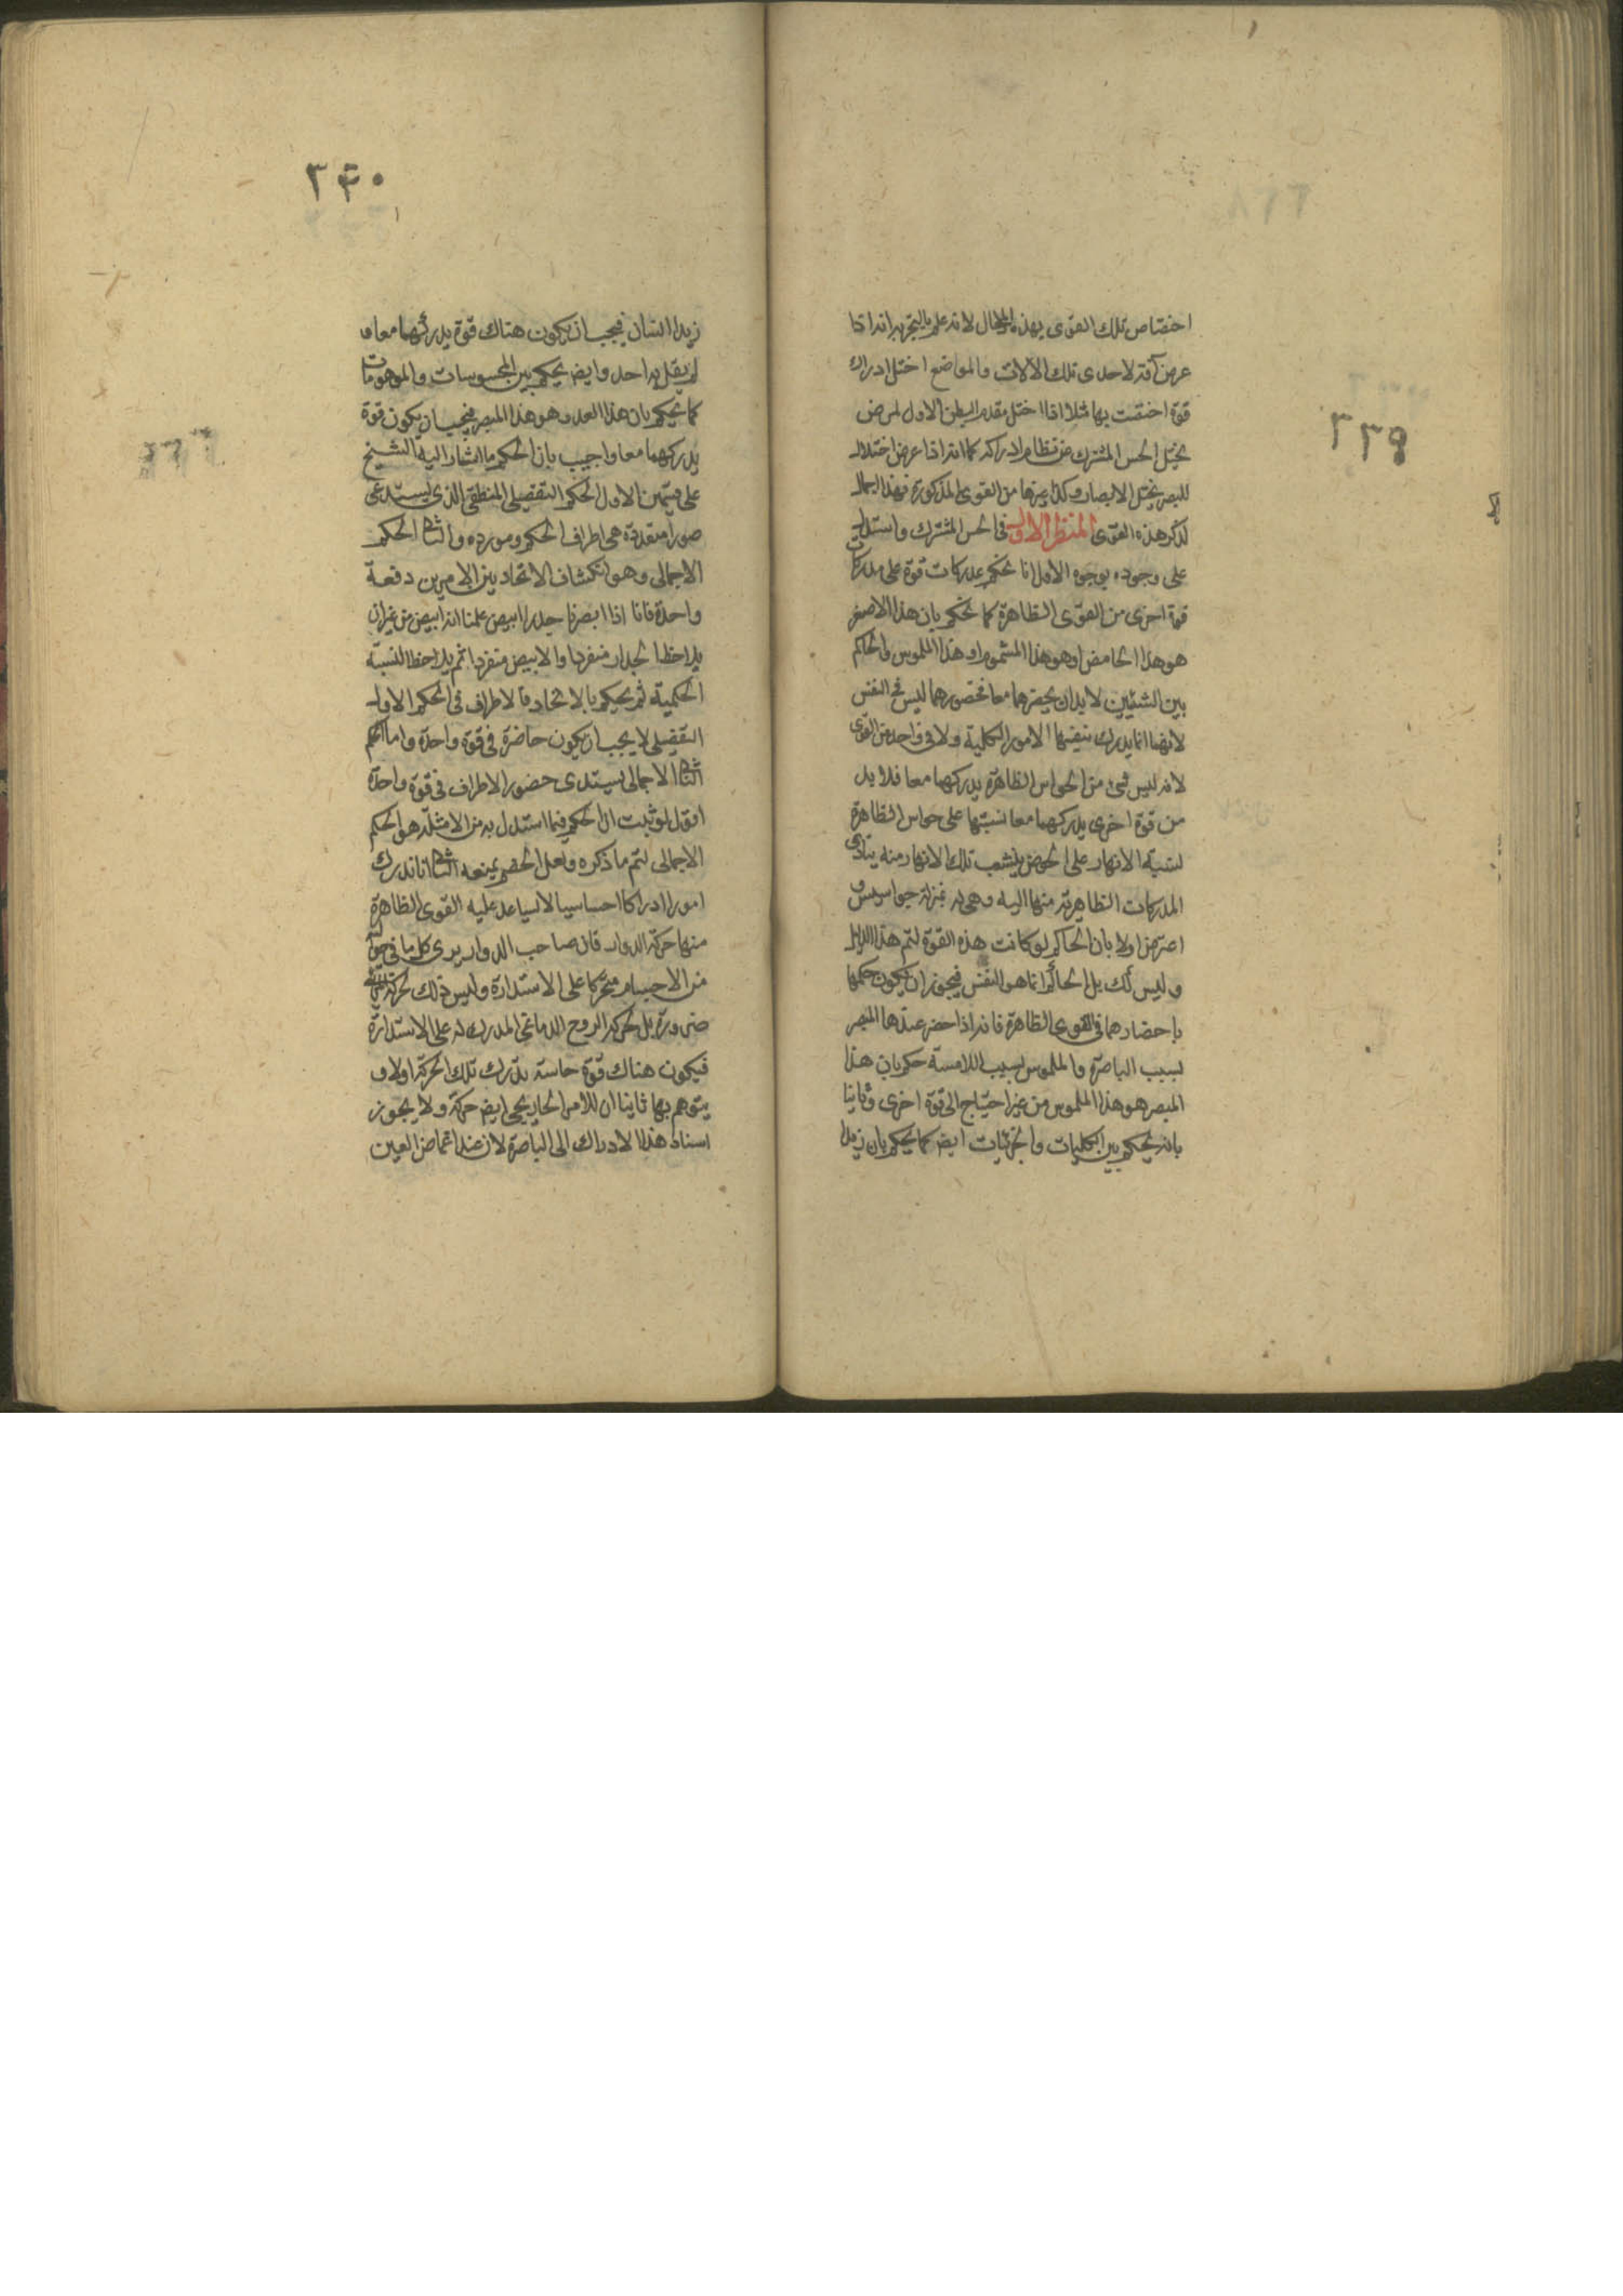 ٣٣٩
اختصاص تلك القوى بهذه المحال لانه علم بالتجربه انه اذا
عرض آفة لاحدى تلك الالات والمواضع اختل ادراك
قوة اختصت بها مثلا اذا اختل مقدم البطن الاول لمرض
يختل الحس المشترك عن نظام ادراكه كما انه اذا عرض اختلال
للبصر يختل الابصار وكذا غيرها من القوى المذكورة فهذا اجمال
لذكر هذه القوى المنظر الاول فى الحس المشترك واستدل
على وجوده بوجوه الاول انا نحكم بمدركات قوة على مدركات
قوة اخرى من القوى الظاهرة كما نحكم بان هذا الاصفر
هو هذا الحامض او هو هذا المشموم او هذا الملموس والحاكم
بين الشيئين لا بد ان يحضرهما معا فحضورهما ليس فى النفس
لانها انما يدرك بنفسها الامور الكلية ولا فى واحد من القوى
لانه ليس شئ من الحواس الظاهرة يدركهما معا فلا بد
من قوة اخرى يدركهما معا نسبتها على حواس الظاهرة
لنسبة الانهار على الحوض ينشعب تلك الانهار منه يتادى
المدركات الظاهرية منها اليه وهى له بمنزلة جواسيس و
اعترض اولا بان الحاكم لو كانت هذه القوة لتم هذا الدليل
و ليس كك بل الحاكم انما هو النفس فيجوز ان يكون حكمها
باحضارهما فى القوى الظاهرة فانه اذا حضر عندها المبصر
بسبب الباصرة والملموس بسبب اللامسة حكم بان هذا
المبصر هو هذا الملموس من غير احتياج الى قوة اخرى وثانيا
بانه يحكم بين الكليات والجزئيات ايض كما يحكم بان زيدا
٣۴٠
زيدا انسان فيجب ان يكون هناك قوة يدركهما معا و
لم يقل به احد وايض يحكم بين المحسوسات والموهومات
كما يحكم بان هذا العدو هو هذا المبصر فيجب ان يكون قوة
يدركهما معا واجيب بان الحكم ما اشار اليه الشيخ
على قسمين الاول الحكم التفصيلى المنطقى الذى يستدعى
صورا متعددة هى اطراف الحكم ومورده والثانى الحكم
الاجمالى وهو انكشاف الاتحاد بين الامرين دفعة
واحدة فانا اذا ابصرنا جدارا ابيض علمنا انه ابيض من غير ان
يلاحظ الجدار منفردا والابيض منفردا ثم يلاحظ النسبة
الحكمية ثم يحكم بالاتحاد فالاطراف فى الحكم الاول
التفصيلى لا يجب ان يكون حاضرة فى قوة واحدة واما الحكم
الثانى الاجمالى يستدعى حضور الاطراف فى قوة واحدة
اقول لو ثبت ان الحكم فيما استدل به من الامثلة هو الحكم
الاجمالى لتم ما ذكره ولعل الخصم يمنعه الثانى انا ندرك
امورا ادراكا احساسيا لا يساعد عليه القوى الظاهرة
منها حركة الدوار فان صاحب الدوار يرى كل ما فى حواليه
من الاجسام متحركا على الاستدارة وليس ذلك لحركة
ضرورة بل لحركة الروح الدماغى المدرك له على الاستدارة
فيكون هناك قوة حاسة يدرك تلك الحركة اولا و
يتوهم بها ثانيا ان للامر الخارجى ايض حركة ولا يجوز
اسناد هذا الادراك الى الباصرة لان عند اغماض العين